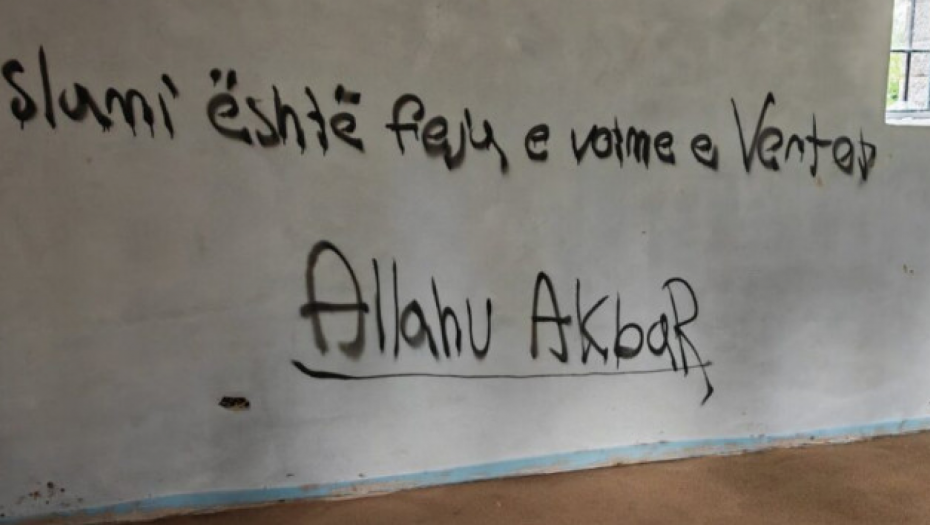 slami është feja e vetme e Vertet
Allahu AkbaR